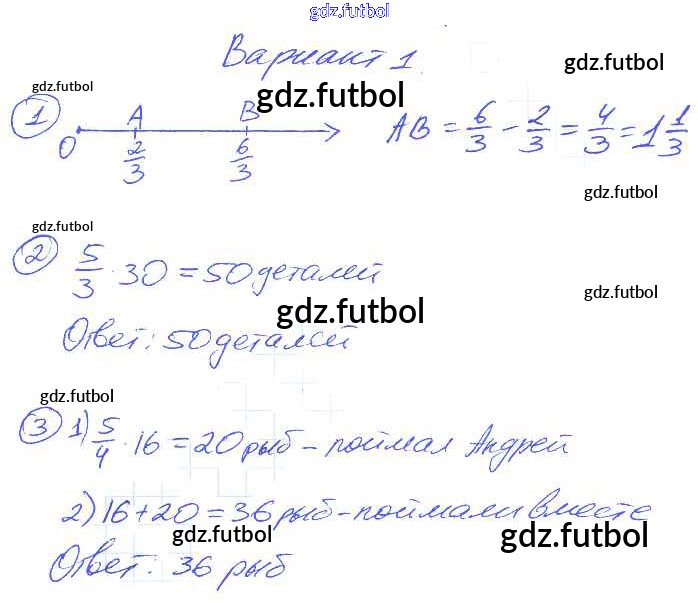 gdz.futbol
Вариант 1
gdz.futbol
gdz.futbol
gdz.futbol
1 O A 2/3 B 6/3 AB = 6/3 - 2/3 = 4/3 = 1 1/3
gdz.futbol
gdz.futbol
2 5/3 · 30 = 50 деталей
gdz.futbol
gdz.futbol
Ответ: 50 деталей
gdz.futbol
3 1) 5/4 · 16 = 20 рыб - поймал Андрей
2) 16 + 20 = 36 рыб - поймали вместе
gdz.futbol
gdz.futbol
Ответ: 36 рыб